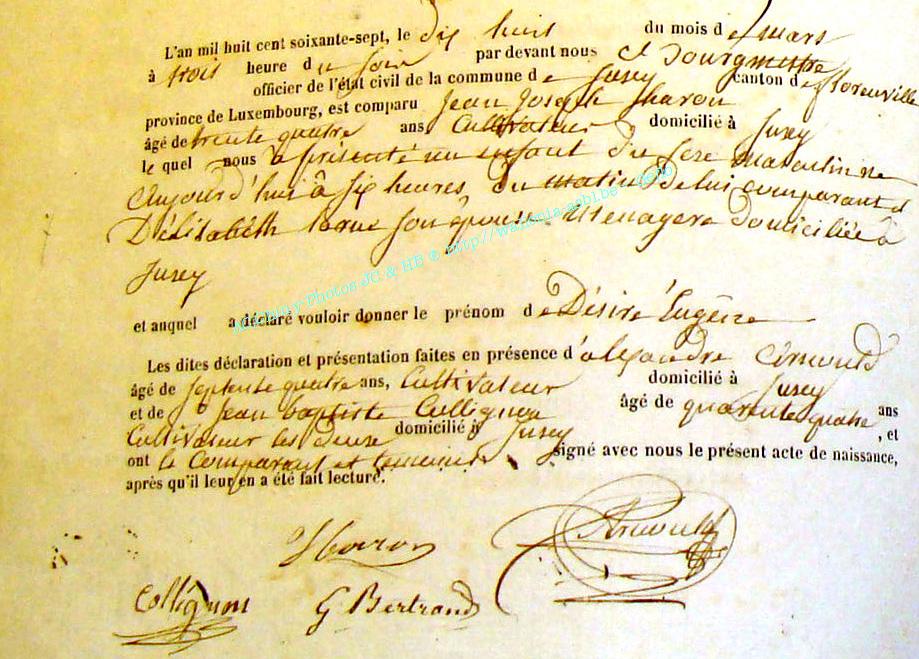 L'an mil huit cent soixante-sept, le dix huit du mois de mars
à trois heure du soir par devant nous Bourgmestre
officier de l'état civil de la commune de Jusey canton de florenville
province de Luxembourg, est comparu Jean Joseph Tharon
âgé de trente quatre ans Cultivateur domicilié à Jusey
lequel nous a présenté un enfant du sexe masculin né
aujourd'hui à six heures du matin De lui comparant et
D'élisabeth son épouse Menagere Domiciliée à
Jusey
et auquel a déclaré vouloir donner le prénom de Désiré Eugène
Les dites déclaration et présentation faites en présence d'alexandre Arnould
âgé de septente quatre ans, Cultivateur domicilié à Jusey
et de Jean baptiste Collignon âgé de quarente quatre ans
Cultivateur les deux domicilié à Jusey , et
ont le Comparant et temoins signé avec nous le présent acte de naissance,
après qu'il leur en a été fait lecture.
Arnould
Collignon G Bertrand
Photos JC & HB © http://wallonia-